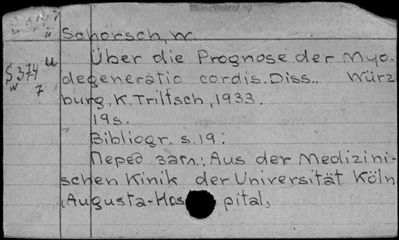 Schorsch, W.
Über die Prognose der Myo-
degeneratio cordis. Diss.. Würz
burg, K. Triltsch, 1933.
19s.
Bibliogr. s. 19.
Перед загл.: Aus der Medizini-
schen Kinik der Universität Köln
(Augusta-Hos pital)
S 374
7